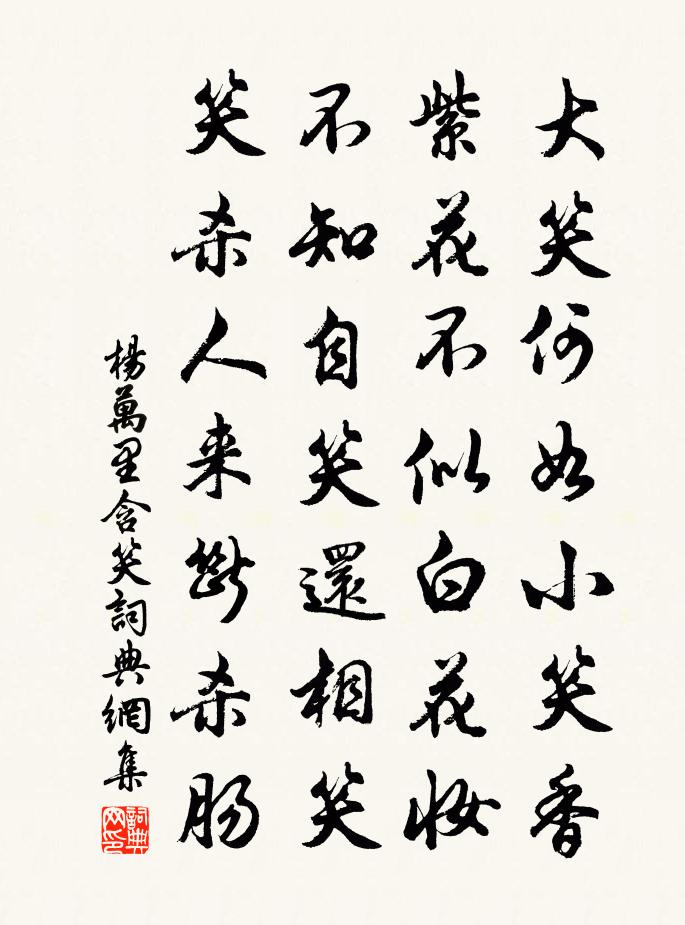 大笑何如小笑香
紫花不似白花妆
不知自笑還相笑
笑杀人来斷杀肠
楊萬里含笑詞典網集
詞典
网印